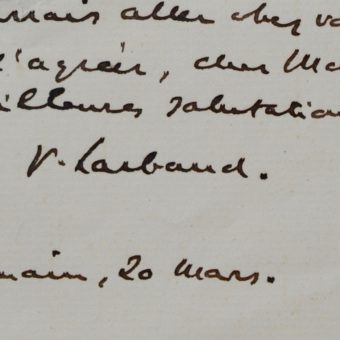 rrais aller chez vo
l'agréer, cher Mo
illeures salutatio
V. Larbaud.
main, 20 Mars.